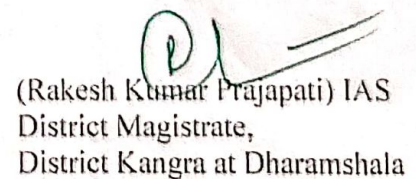 (Rakesh Kumar Prajapati) IAS
District Magistrate,
District Kangra at Dharamshala